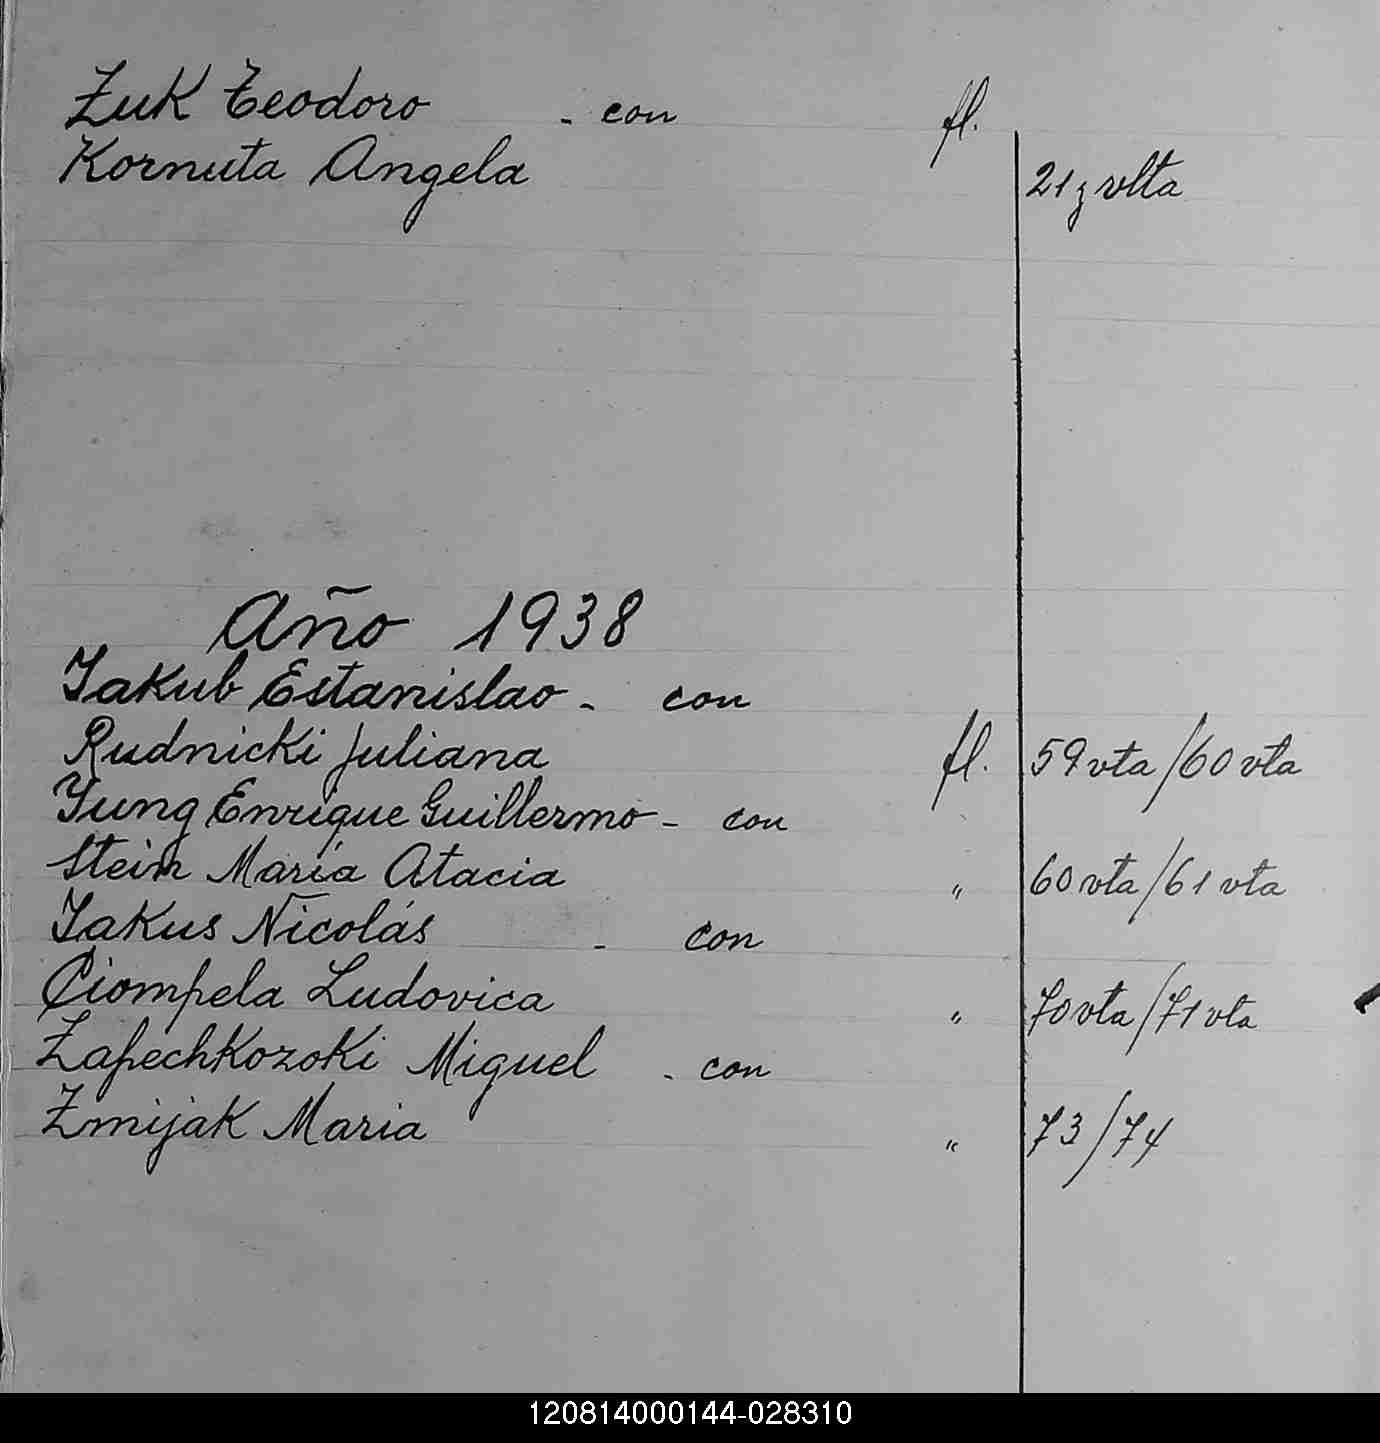 Zuk Teodoro - con fl.
Kornuta Angela 21 y vlta
Año 1938
Yakub Estanislao - con
Rudnicki Juliana fl. 59 vta/60 vta
Yung Enrique Guillermo - con
Stein María Atacia " 60 vta/61 vta
Yakus Nicolás - con
Ciompela Ludovica " 70 vta/71 vta
Zapechkozoki Miguel - con
Zmijak Maria " 73/74
120814000144-028310